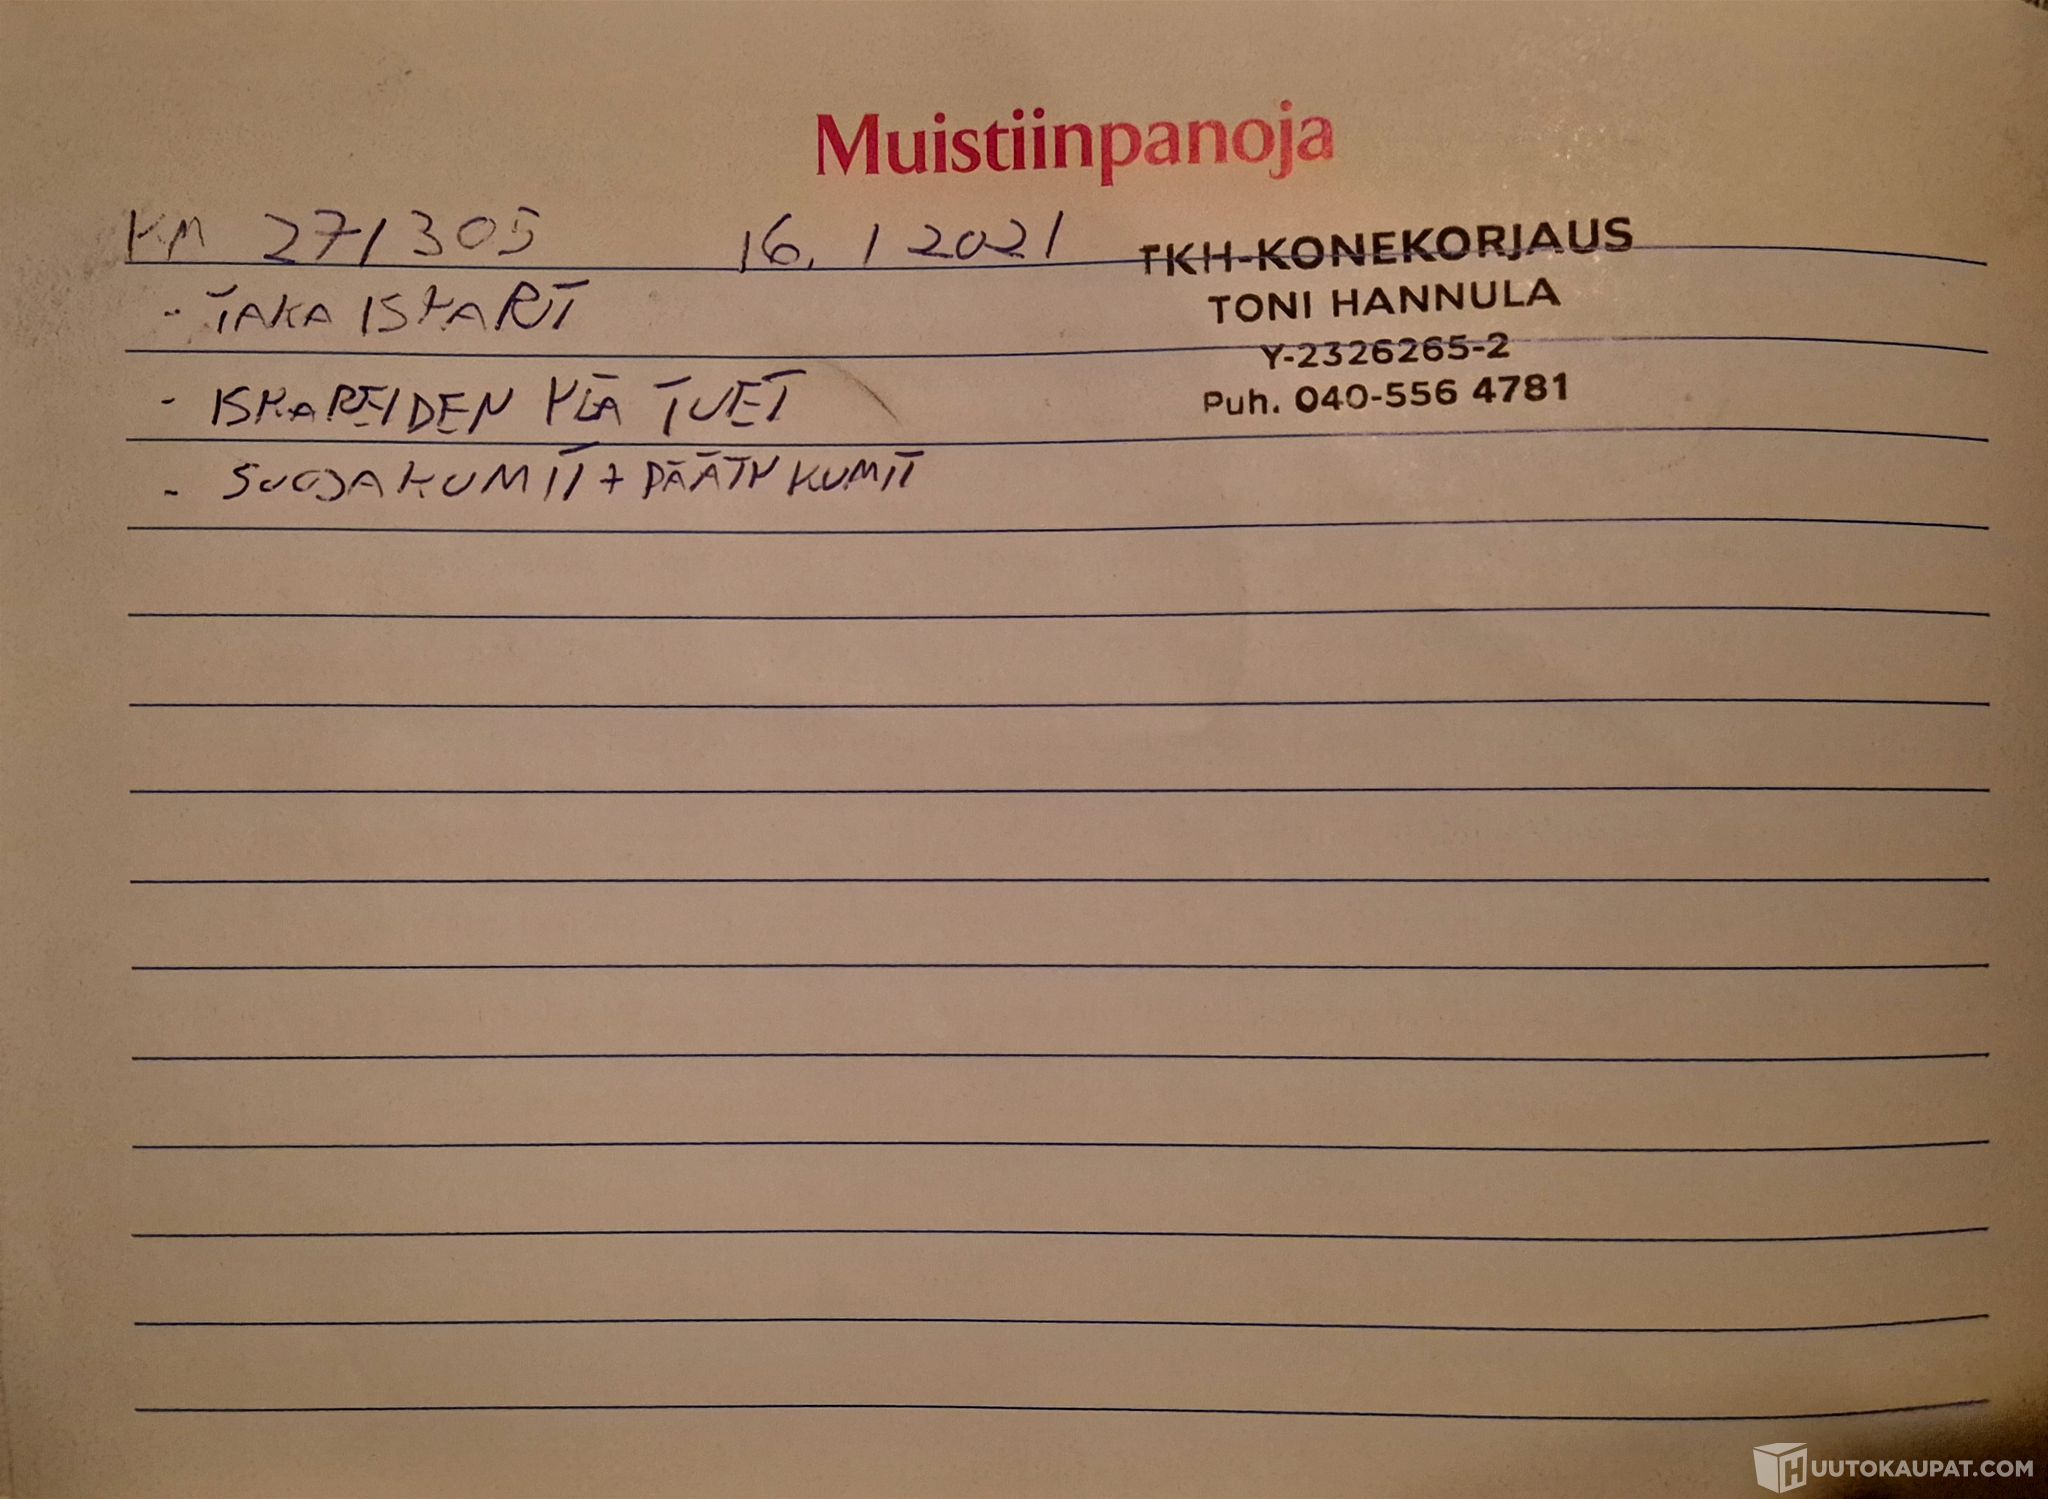 Muistiinpanoja
KM 271305 16.1 2021
- TAKA ISKARIT
- ISKAREIDEN YLÄ TUET
- SUOJAKUMIT + PÄÄTY KUMIT
TKH-KONEKORJAUS
TONI HANNULA
Y-2326265-2
Puh. 040-556 4781
HUUTOKAUPAT.COM